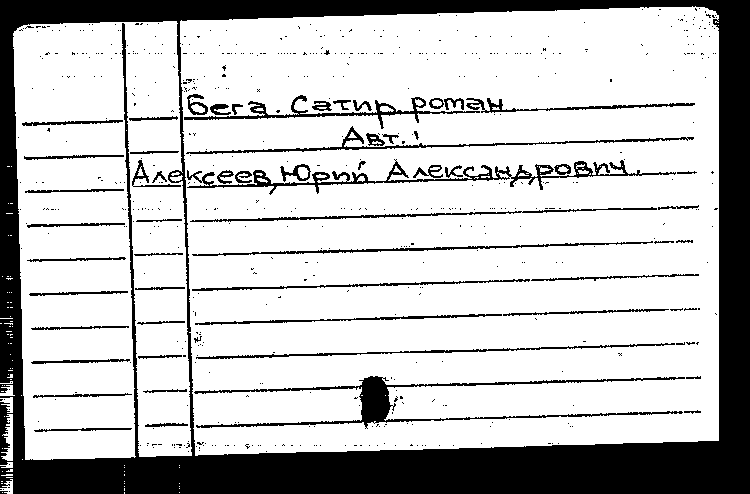 Бега. Сатир. роман.
Авт.:
Алексеев, Юрий Александрович.